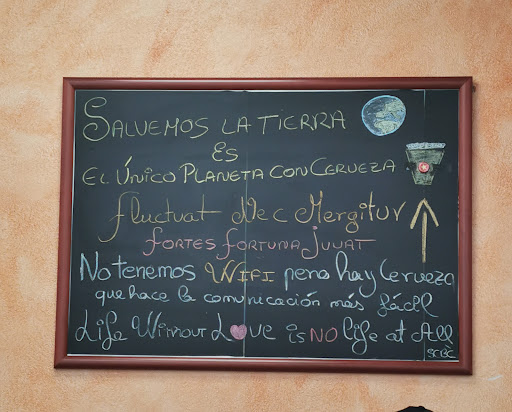 SALVEMOS LA TIERRA
ES
EL ÚNICO PLANETA CON CERVEZA
fluctuat Nec Mergitur
fORTES fORTUNA JUVAT
No tenemos WIFI pero hay Cerveza
que hace la comunicación más fácil
Life Without Love is NO life at All